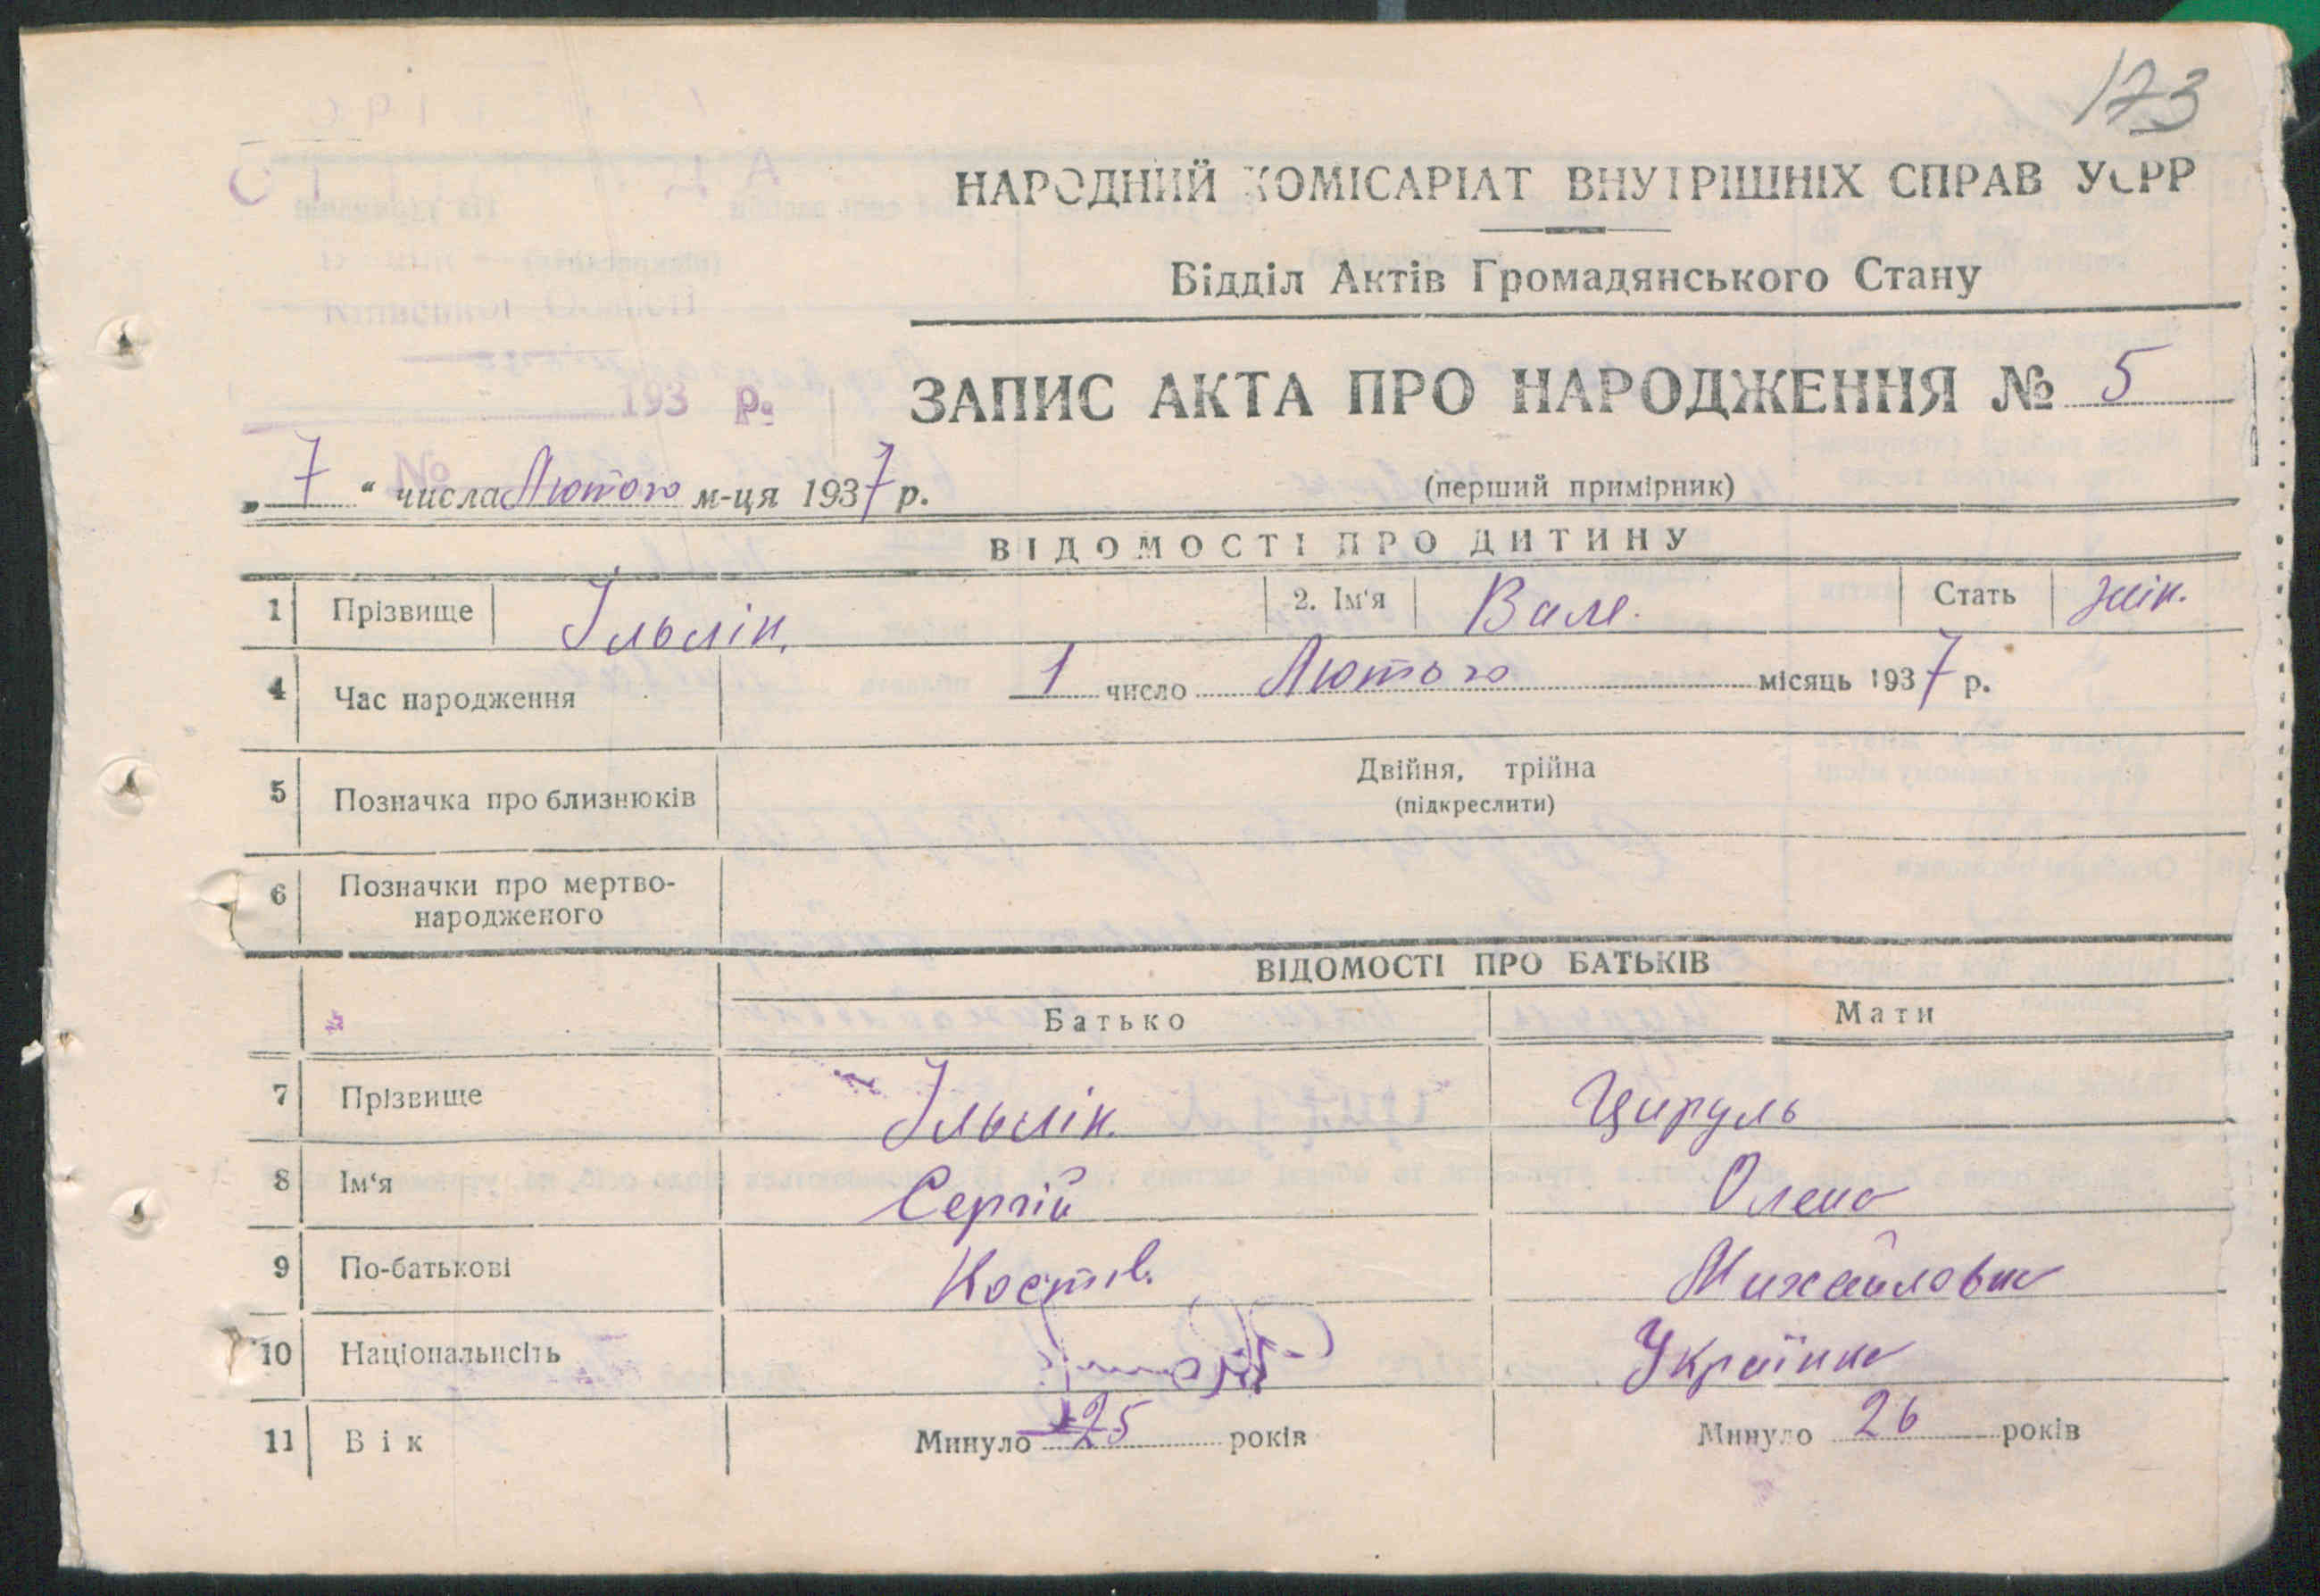 173
НАРОДНИЙ КОМІСАРІАТ ВНУТРІШНІХ СПРАВ УСРР
Відділ Актів Громадянського Стану
193 р.
ЗАПИС АКТА ПРО НАРОДЖЕННЯ № 5
„ 7 “ числа Лютого м-ця 1937 р.
№
(перший примірник)
ВІДОМОСТІ ПРО ДИТИНУ
1 Прізвище Ільлік. 2. Ім'я Вале. Стать жін.
4 Час народження 1 число Лютого місяць 1937 р.
5 Позначка про близнюків Двійня, трійна
(підкреслити)
6 Позначки про мертво-
народженого
ВІДОМОСТІ ПРО БАТЬКІВ
Батько Мати
7 Прізвище Ільлік. Цируль
8 Ім'я Сергій Олена
9 По-батькові Костів. Михайловна
10 Національнсіть Українка
11 Вік Минуло 25 років Минуло 26 років